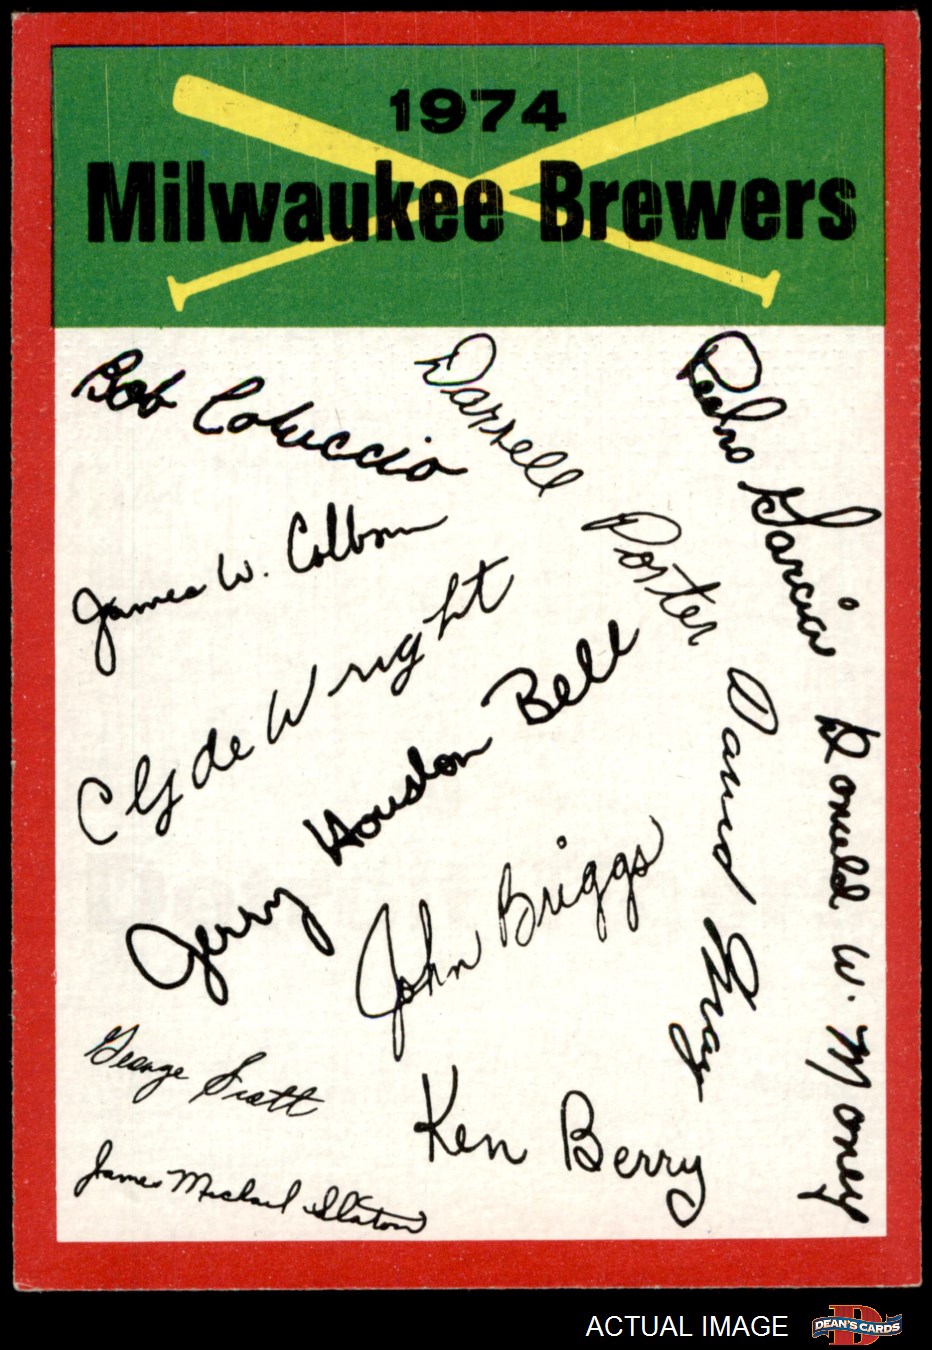 1974
Milwaukee Brewers
Bob Coluccio
Darrell Porter
Pedro Garcia
James W. Colborn
Clyde Wright
Jerry Houston Bell
David May
Donald W. Money
John Briggs
George Scott
Ken Berry
James Michael Slaton
ACTUAL IMAGE
DEAN'S CARDS